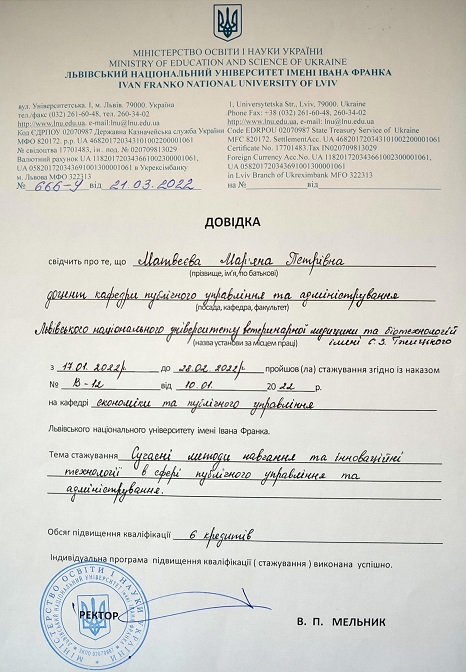 МІНІСТЕРСТВО ОСВІТИ І НАУКИ УКРАЇНИ
MINISTRY OF EDUCATION AND SCIENCE OF UKRAINE
ЛЬВІВСЬКИЙ НАЦІОНАЛЬНИЙ УНІВЕРСИТЕТ ІМЕНІ ІВАНА ФРАНКА
IVAN FRANKO NATIONAL UNIVERSITY OF LVIV
вул. Університетська, 1, м. Львів, 79000, Україна
тел./факс (032) 261-60-48, тел. 260-34-02
http://www.lnu.edu.ua, e-mail: lnu@lnu.edu.ua
Код ЄДРПОУ 02070987 Державна Казначейська служба України
МФО 820172, р.р. UA 468201720343101002200001061
№ свідоцтва 17701483, ін. под. № 020709813029
Валютний рахунок UA 118201720343661002300001061,
UA 058201720343691001300001061 в Укрексімбанку
м. Львова МФО 322313
1, Universytetska Str., Lviv, 79000, Ukraine
Phone Fax: +38 (032) 261-60-48, 260-34-02
http://www.lnu.edu.ua, e-mail: lnu@lnu.edu.ua
Code EDRPOU 02070987 State Treasury Service of Ukraine
MFC 820172. SettlementAcc. UA 468201720343101002200001061
Certificate No. 17701483, Tax IN020709813029
Foreign Currency Acc.No. UA 118201720343661002300001061,
UA 058201720343691001300001061
in Lviv Branch of Ukreximbank MFO 322313
№ 666-У від 21.03.2022
на № від
ДОВІДКА
свідчить про те, що Матвєєва Мар'яна Петрівна
(прізвище, ім'я, по батькові)
доцент кафедри публічного управління та адміністрування
(посада, кафедра, факультет)
Львівського національного університету ветеринарної медицини та біотехнологій
(назва установи за місцем праці) імені С.З. Ґжицького
з 17.01.2022р. до 28.02.2022р. пройшов(ла) стажування згідно із наказом
№ В-12 від 10.01 2022 р.
на кафедрі економіки та публічного управління
Львівського національного університету імені Івана Франка.
Тема стажування Сучасні методи навчання та інноваційні
технології в сфері публічного управління та
адміністрування.
Обсяг підвищення кваліфікації 6 кредитів
Індивідуальна програма підвищення кваліфікації ( стажування ) виконана успішно.
РЕКТОР
В. П. МЕЛЬНИК